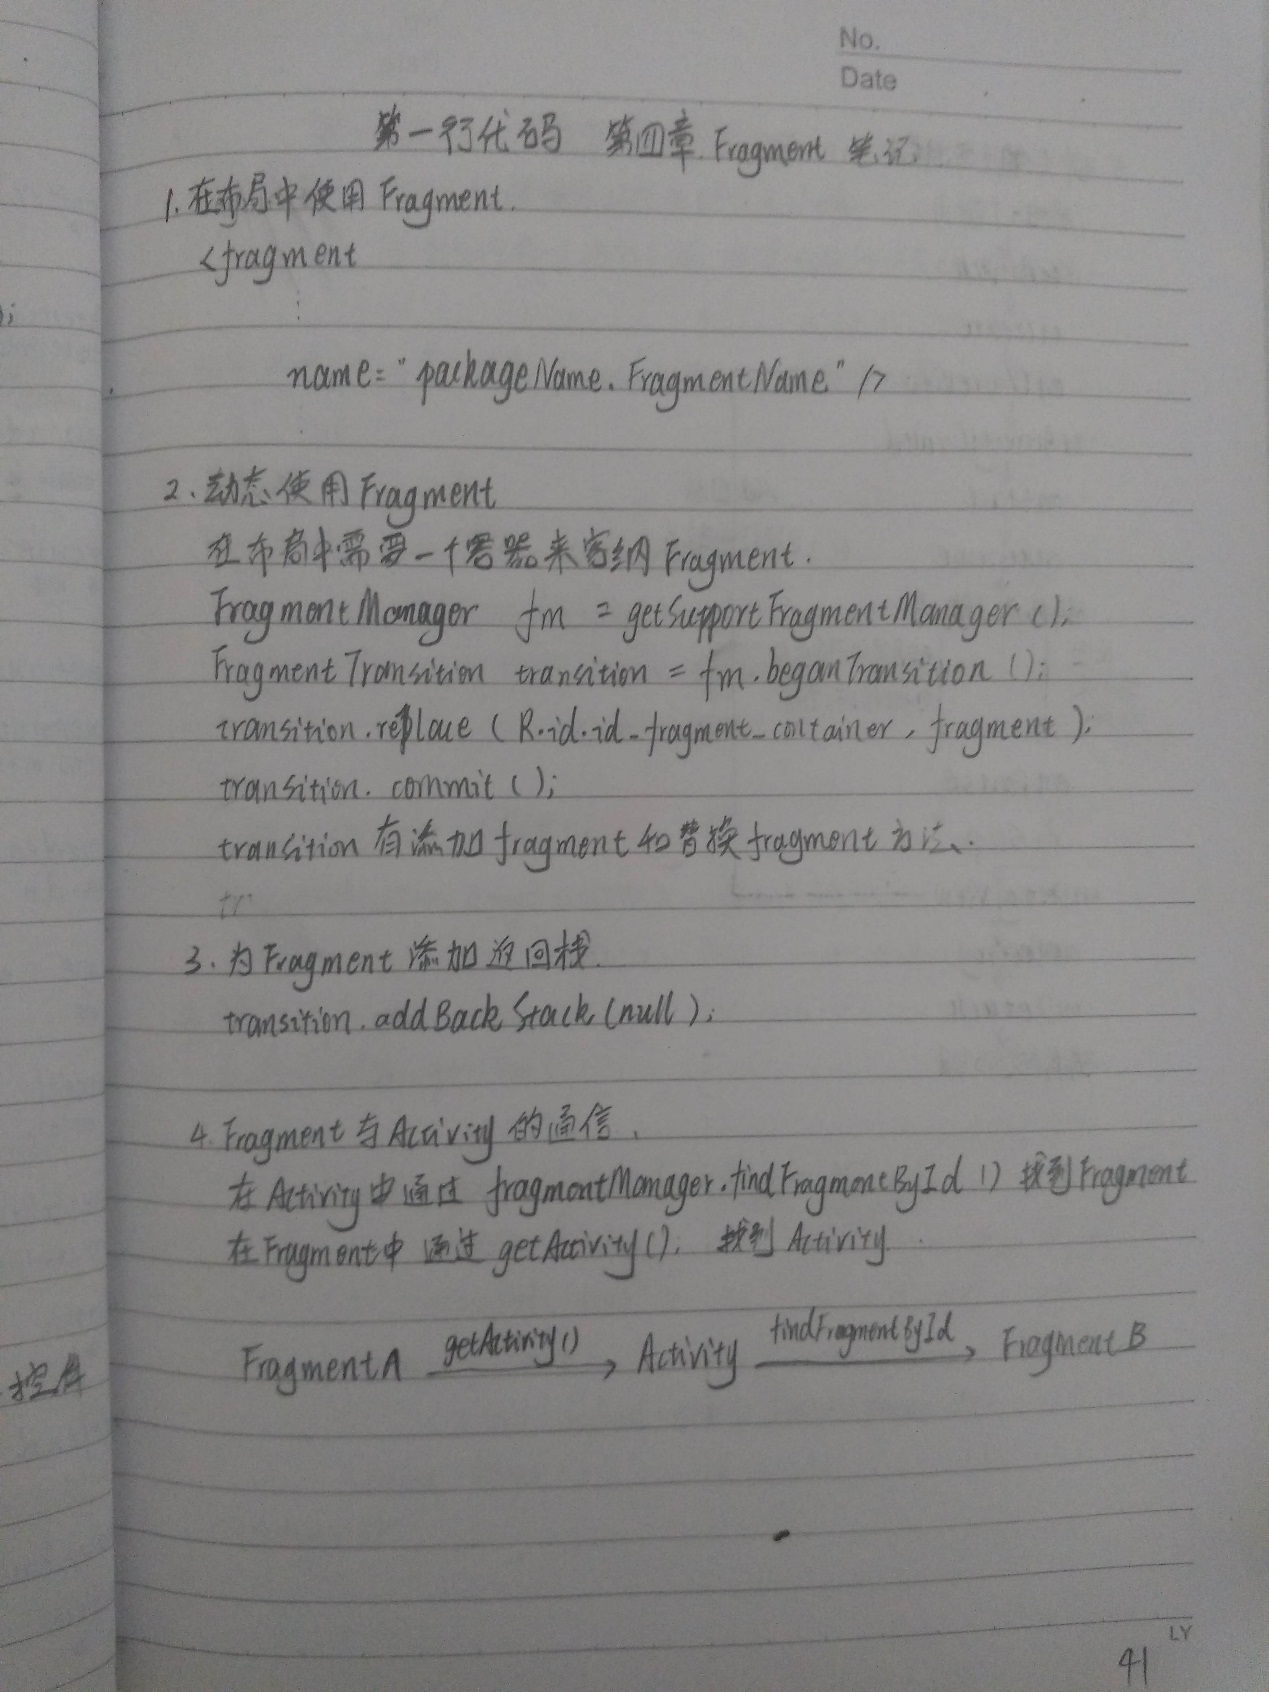 No.
Date
第一行代码 第四章 Fragment 笔记.
1. 在布局中使用 Fragment.
<fragment
⋮
name="packageName.FragmentName" />
2、动态使用Fragment
在布局中需要一个容器来容纳Fragment.
FragmentManager fm = getSupportFragmentManager();
FragmentTransition transition = fm.beganTransition();
transition.replace (R.id.id_fragment_container, fragment);
transition.commit();
transition 有添加fragment和替换fragment方法.
tr
3. 为Fragment 添加返回栈.
transition.addBackStack(null);
4. Fragment与Activity的通信.
在Activity中通过 fragmentManager.findFragmentById() 找到Fragment
在Fragment中 通过 getActivity(); 找到 Activity.
FragmentA getActivity() → Activity findFragmentById → FragmentB
);
控件
LY
41